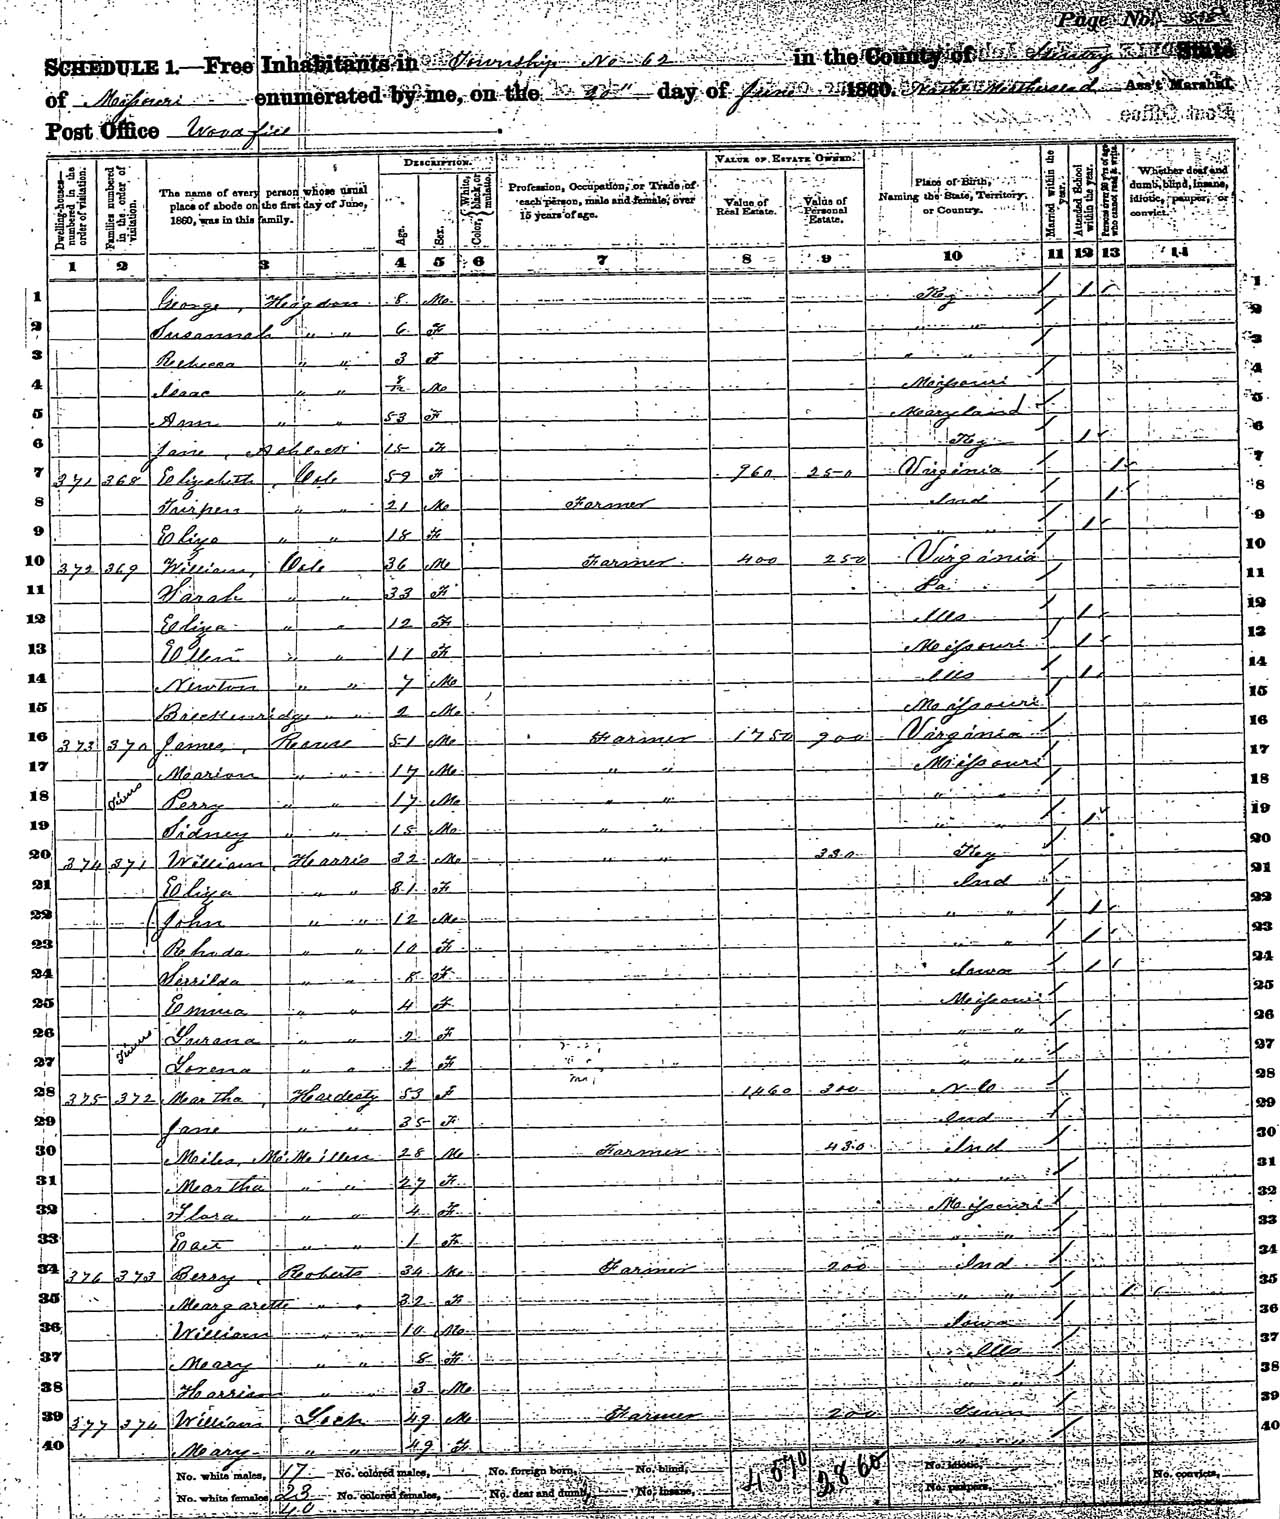 Page No.
SCHEDULE 1.—Free Inhabitants in Township No 62 in the County of State
of Missouri enumerated by me, on the 20" day of June 1860. Ass't Marshal.
Post Office
Dwelling-houses—numbered in the order of visitation.
Families numbered in the order of visitation.
The name of every person whose usual place of abode on the first day of June, 1860, was in this family.
DESCRIPTION.
Age.
Sex.
Color, { White, black, or mulatto.
Profession, Occupation, or Trade of each person, male and female, over 15 years of age.
VALUE OF ESTATE OWNED.
Value of Real Estate.
Value of Personal Estate.
Place of Birth, Naming the State, Territory, or Country.
Married within the year.
Attended School within the year.
Persons over 20 y'rs of age who cannot read & write.
Whether deaf and dumb, blind, insane, idiotic, pauper, or convict.
1 2 3 4 5 6 7 8 9 10 11 12 13 14
1 George, Heggdon 8 M Ky / 1 1
2 Susannah " " 6 F " " / 2
3 Rebecca " " 3 F " " / 3
4 Isaac " " 8/12 M Missouri / 4
5 Ann " " 53 F Maryland / 5
6 Jane, 15 F Ky / 1 6
7 371 368 Elizabeth, Cole 59 F 960 250 Virginia / 1 7
8 " " 21 M Farmer Ind / 1 8
9 Eliza " " 18 F " " / 1 9
10 372 369 William, Cole 36 M Farmer 400 250 Virginia / 10
11 Sarah " " 33 F Pa / 11
12 Eliza " " 12 F Ills / 1 12
13 Ellen " " 11 F Missouri / 1 13
14 Newton " " 7 M Ills / 1 14
15 Breckenridge " " 2 M Missouri / 15
16 373 370 James, 51 M Farmer 1750 900 Virginia / 16
17 Marion " " 17 M " " Missouri / 17
18 Twins Perry " " 17 M " " " " / 18
19 Sidney " " 15 M " " " " / 1 19
20 374 371 William, Harris 32 M " " 330 Ky / 20
21 Eliza " " 31 F Ind / 21
22 John " " 12 M " " / 1 22
23 " " 10 F " " / 1 23
24 Serrilda " " 8 F Iowa / 1 24
25 Emma " " 4 F Missouri / 25
26 " " 2 F " " / 26
27 Twins Lorena " " 2 F " " / 27
28 375 372 Martha, Hardesty 53 F 1460 300 N. C / 28
29 Jane " " 35 F Ind / 29
30 Miles, McMillen 28 M Farmer 430 Ind / 30
31 Martha " " 27 F " " / 31
32 Flora " " 4 F Missouri / 32
33 " " 1 F " " / 33
34 376 373 Berry, Roberts 34 M Farmer 200 Ind / 34
35 Margarette " " 32 F " " / 1 35
36 William " " 10 M Iowa / 36
37 Mary " " 8 F Ills / 37
38 Harrison " " 3 M " " / 38
39 377 374 William, 49 M Farmer 200 Tenn / 39
40 Mary " " 49 F " " / 40
No. white males, 17 No. colored males, No. foreign born, No. blind, 4570 2860 No. idiotic, No. convicts,
No. white females, 23 No. colored females, No. deaf and dumb, No. insane, No. paupers,
40